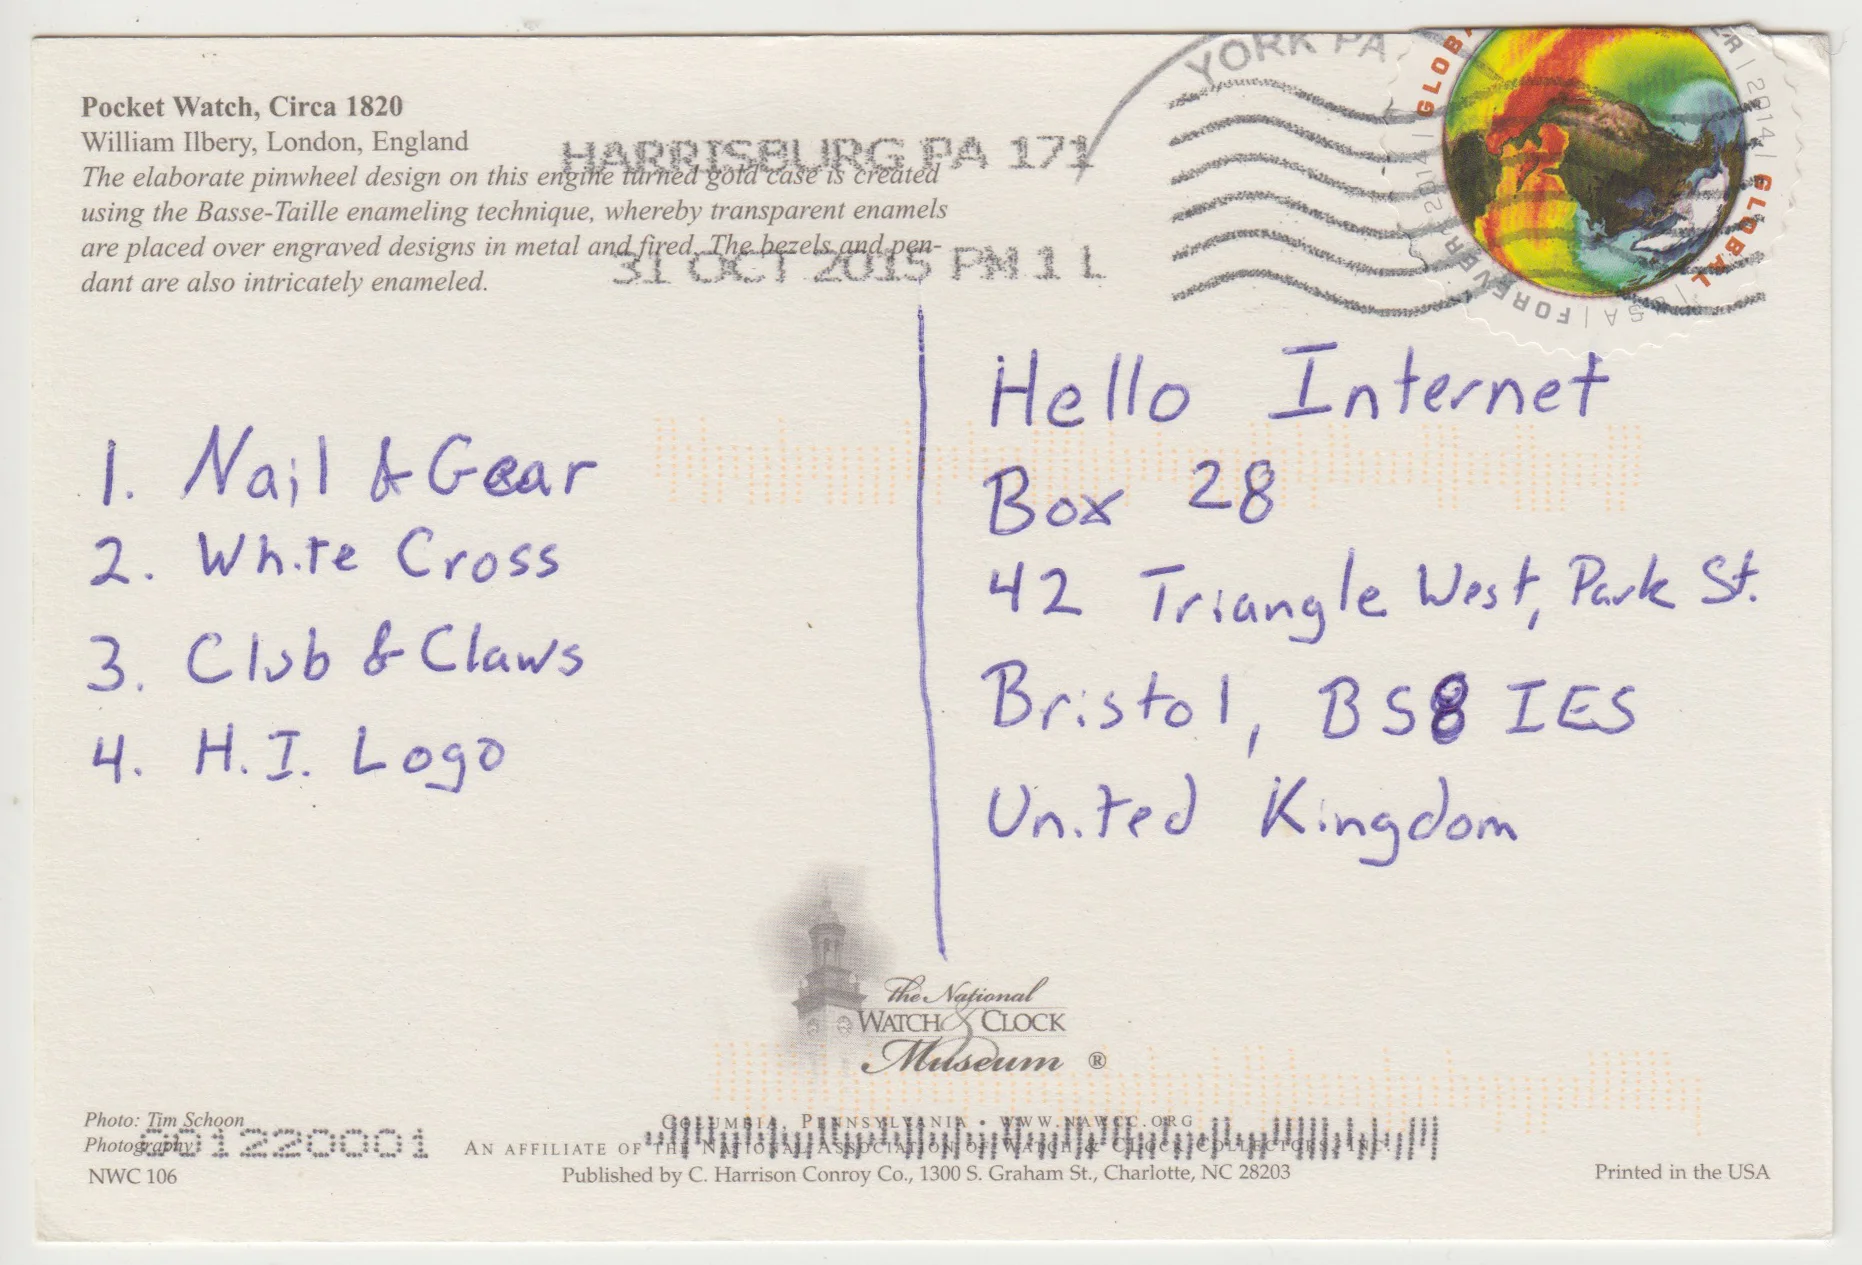 Pocket Watch, Circa 1820
William Ilbery, London, England
The elaborate pinwheel design on this engine turned gold case is created
using the Basse-Taille enameling technique, whereby transparent enamels
are placed over engraved designs in metal and fired. The bezels and pen-
dant are also intricately enameled.
YORK PA
HARRISBURG PA 171
31 OCT 2015 PM 1 L
GLOBAL | FOREVER | 2014 | USA
1. Nail & Gear
2. White Cross
3. Club & Claws
4. H.I. Logo
Hello Internet
Box 28
42 Triangle West, Park St.
Bristol, BS8 IES
United Kingdom
The National
WATCH & CLOCK
Museum ®
COLUMBIA, PENNSYLVANIA • WWW.NAWCC.ORG
AN AFFILIATE OF THE NATIONAL ASSOCIATION OF WATCH & CLOCK COLLECTORS, INC.
Published by C. Harrison Conroy Co., 1300 S. Graham St., Charlotte, NC 28203
Photo: Tim Schoon
Photography
001220001
NWC 106
Printed in the USA